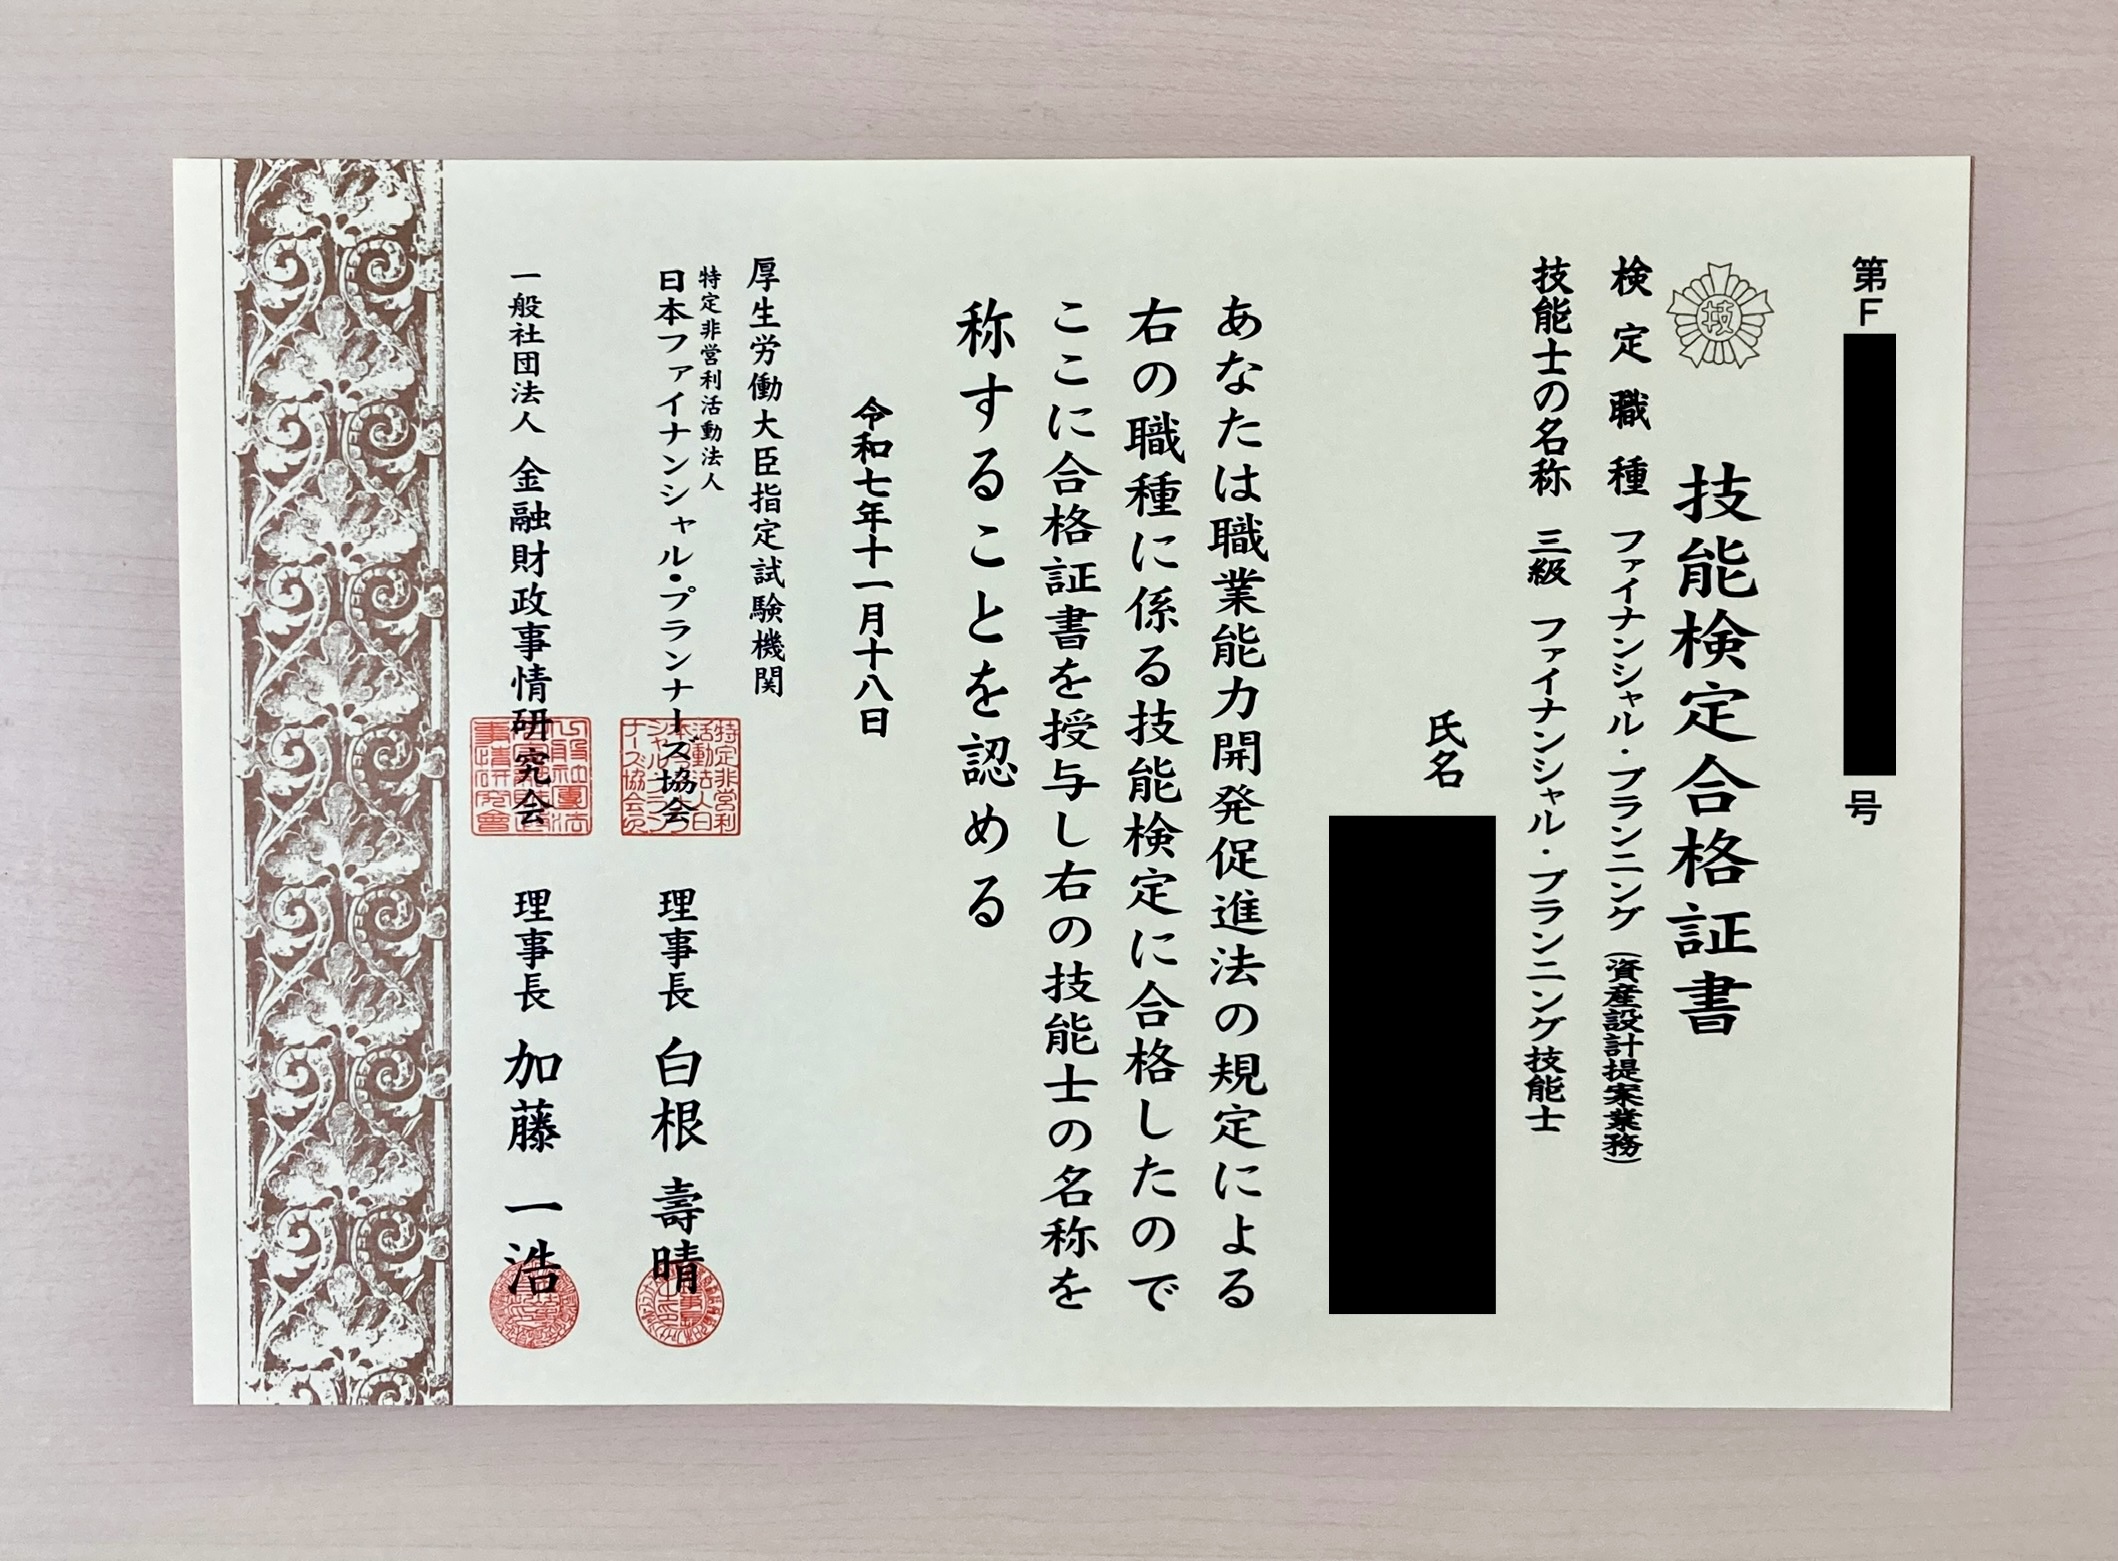 第F
号
技
技能検定合格証書
検定職種 ファイナンシャル・プランニング(資産設計提案業務)
技能士の名称 三級 ファイナンシャル・プランニング技能士
氏名
あなたは職業能力開発促進法の規定による
右の職種に係る技能検定に合格したので
ここに合格証書を授与し右の技能士の名称を
称することを認める
令和七年十一月十八日
厚生労働大臣指定試験機関
特定非営利活動法人
日本ファイナンシャル・プランナーズ協会 理事長 白根 壽晴
一般社団法人 金融財政事情研究会 理事長 加藤 一浩